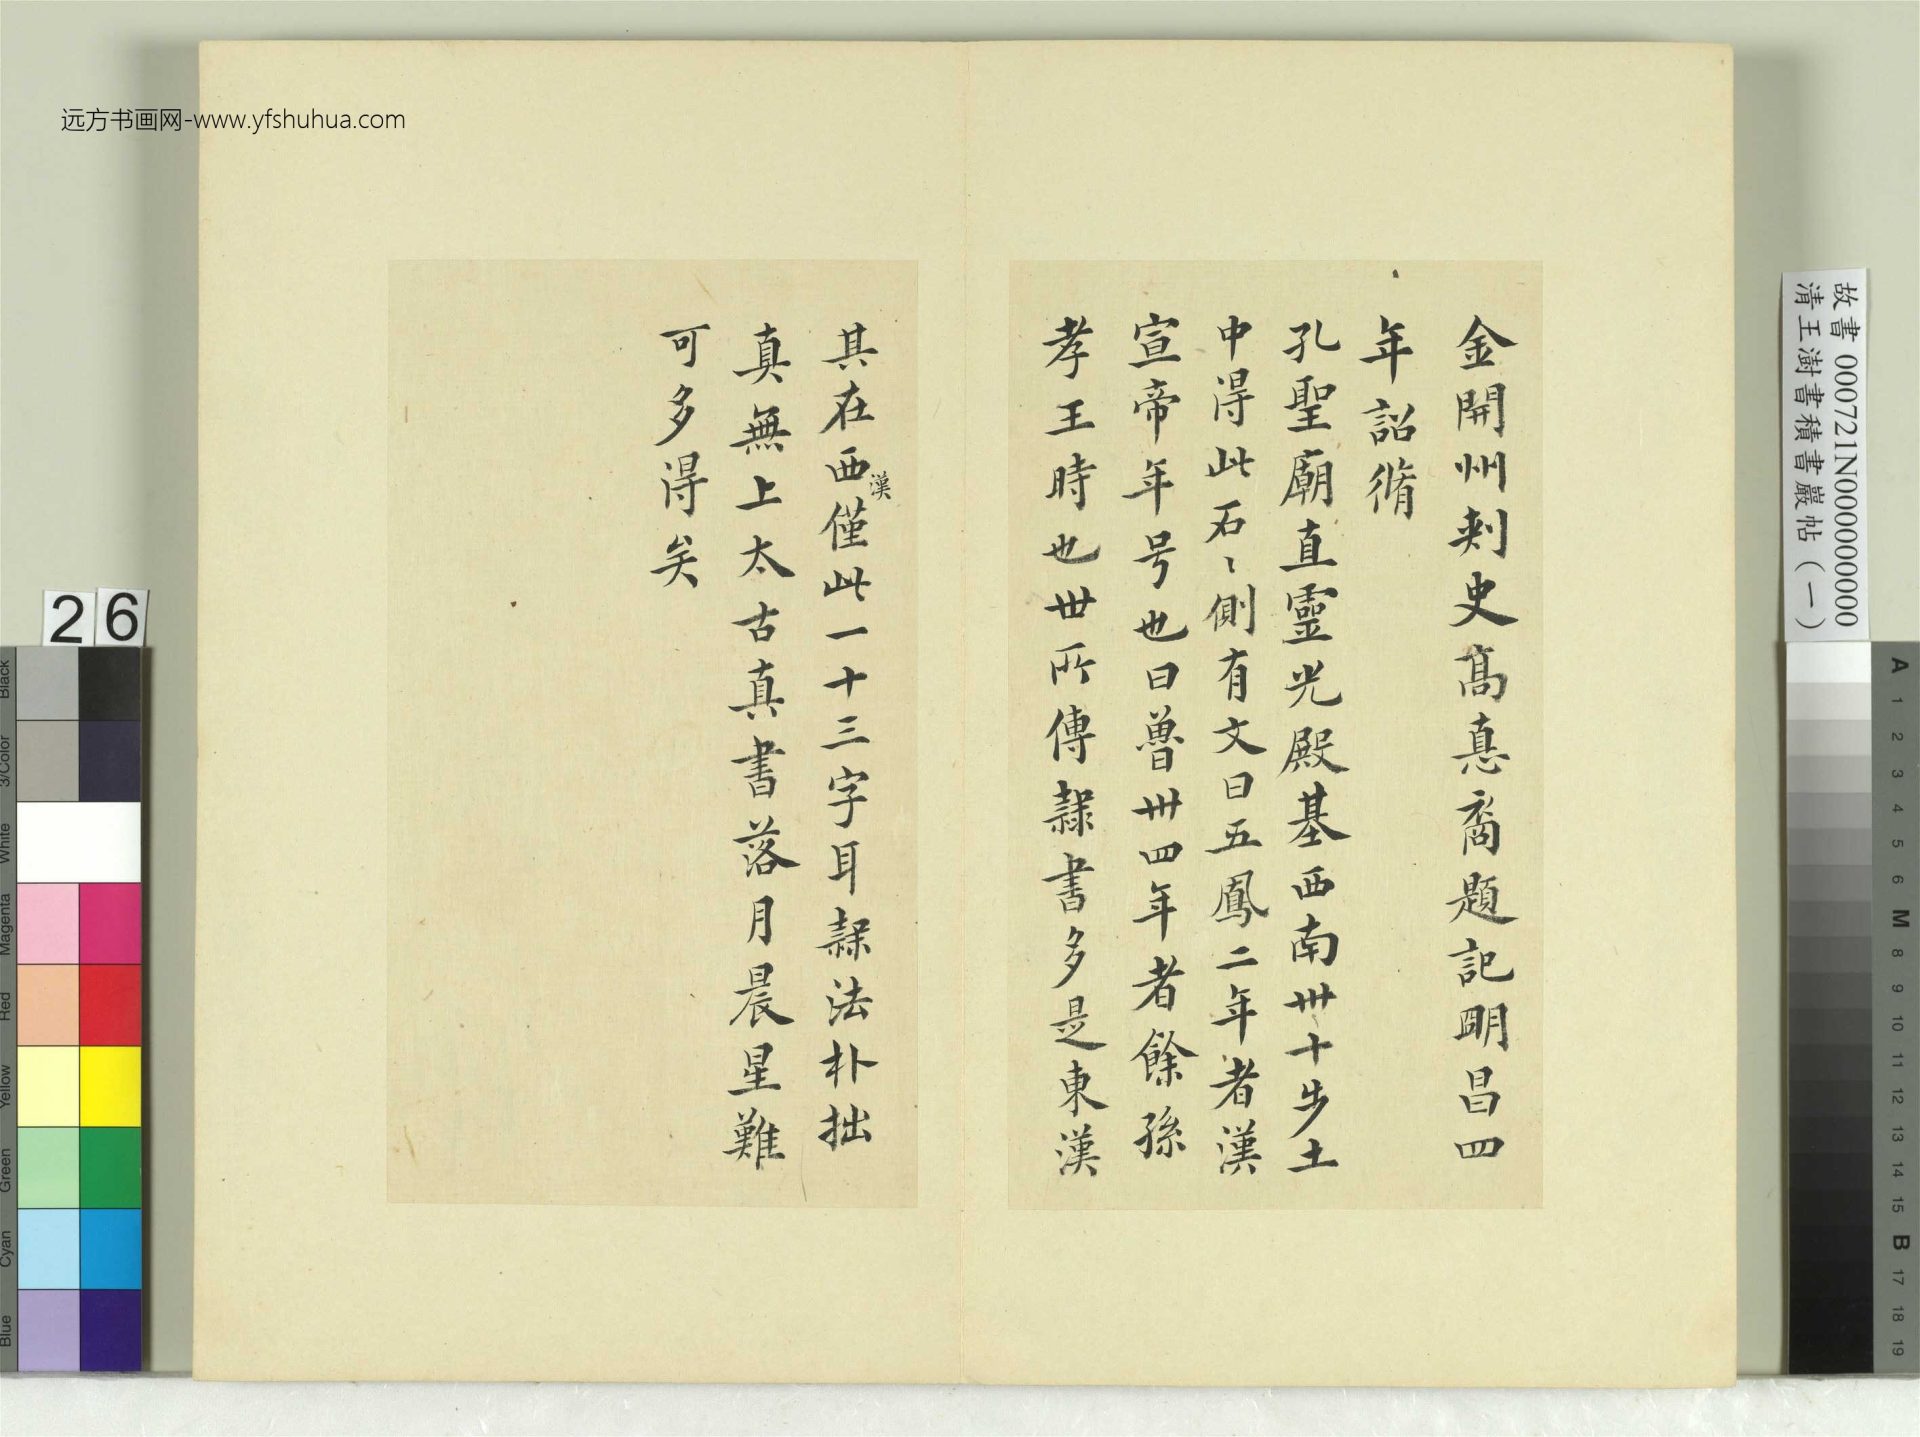 远方书画网-www.yfshuhua.com
金開州刺史高悳裔題記明昌四
年詔脩
孔聖廟直靈光殿基西南卅十步土
中得此石〻側有文曰五鳳二年者漢
宣帝年号也曰魯卅四年者餘孫
孝王時也世所傳隸書多是東漢
其在西漢僅此一十三字耳隸法朴拙
真無上太古真書落月晨星難
可多得矣
故書 000721N000000000
清王澍書積書巖帖（一）
26
Black
3/Color
White
Magenta
Red
Yellow
Green
Cyan
Blue
A
1
2
3
4
5
6
M
8
9
10
11
12
13
14
15
B
17
18
19